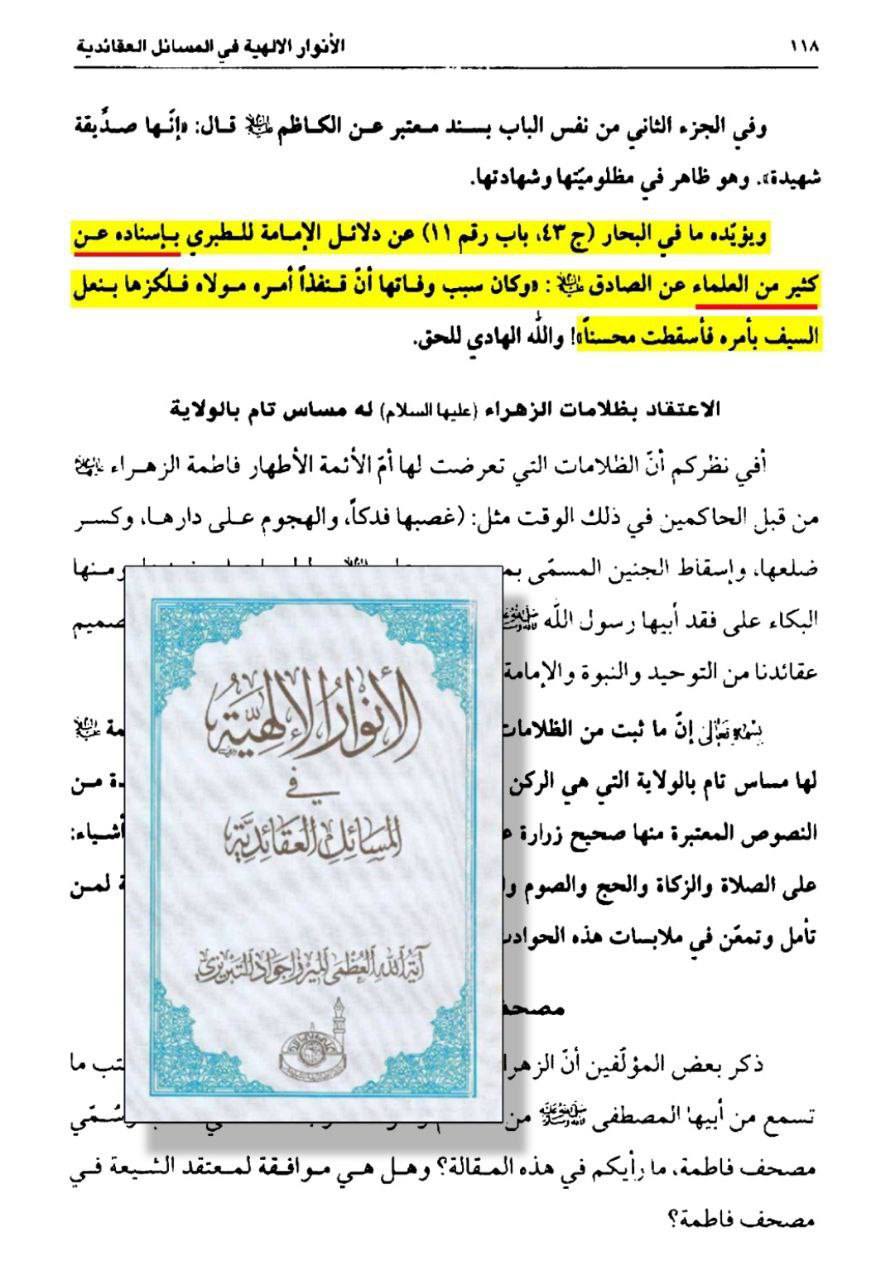 ١١٨
الأنوار الالهية في المسائل العقائدية
وفي الجزء الثاني من نفس الباب بسند معتبر عن الكاظم عليه السلام قال: «إنّها صدّيقة
شهيدة». وهو ظاهر في مظلوميّتها وشهادتها.
ويؤيّده ما في البحار (ج ٤٣، باب رقم ١١) عن دلائل الإمامة للطبري بإسناده عن
كثير من العلماء عن الصادق عليه السلام: «وكان سبب وفاتها أنّ قنفذاً أمره مولاه فلكزها بنعل
السيف بأمره فأسقطت محسناً»! والله الهادي للحق.
الاعتقاد بظلامات الزهراء (عليها السلام) له مساس تام بالولاية
أفي نظركم أنّ الظلامات التي تعرضت لها أمّ الأئمة الأطهار فاطمة الزهراء عليها السلام
من قبل الحاكمين في ذلك الوقت مثل: (غصبها فدكاً، والهجوم على دارها، وكسر
ضلعها، وإسقاط الجنين المسمّى ومنها
البكاء على فقد أبيها رسول الله صلى الله عليه وآله وسلم صميم
عقائدنا من التوحيد والنبوة والإمامة
بسمه تعالى إنّ ما ثبت من الظلامات
لها مساس تام بالولاية التي هي الركن من
النصوص المعتبرة منها صحيح زرارة أشياء:
على الصلاة والزكاة والحج والصوم لمن
تأمل وتمعّن في ملابسات هذه الحوادث
مصحف
ذكر بعض المؤلّفين أنّ الزهراء ما
تسمع من أبيها المصطفى صلى الله عليه وآله وسلم من
مصحف فاطمة، ما رأيكم في هذه المقالة؟ وهل هي موافقة لمعتقد الشيعة في
مصحف فاطمة؟
الأنوار الإلهية
في
المسائل العقائدية
آية الله العظمى الميرزا جواد التبريزي